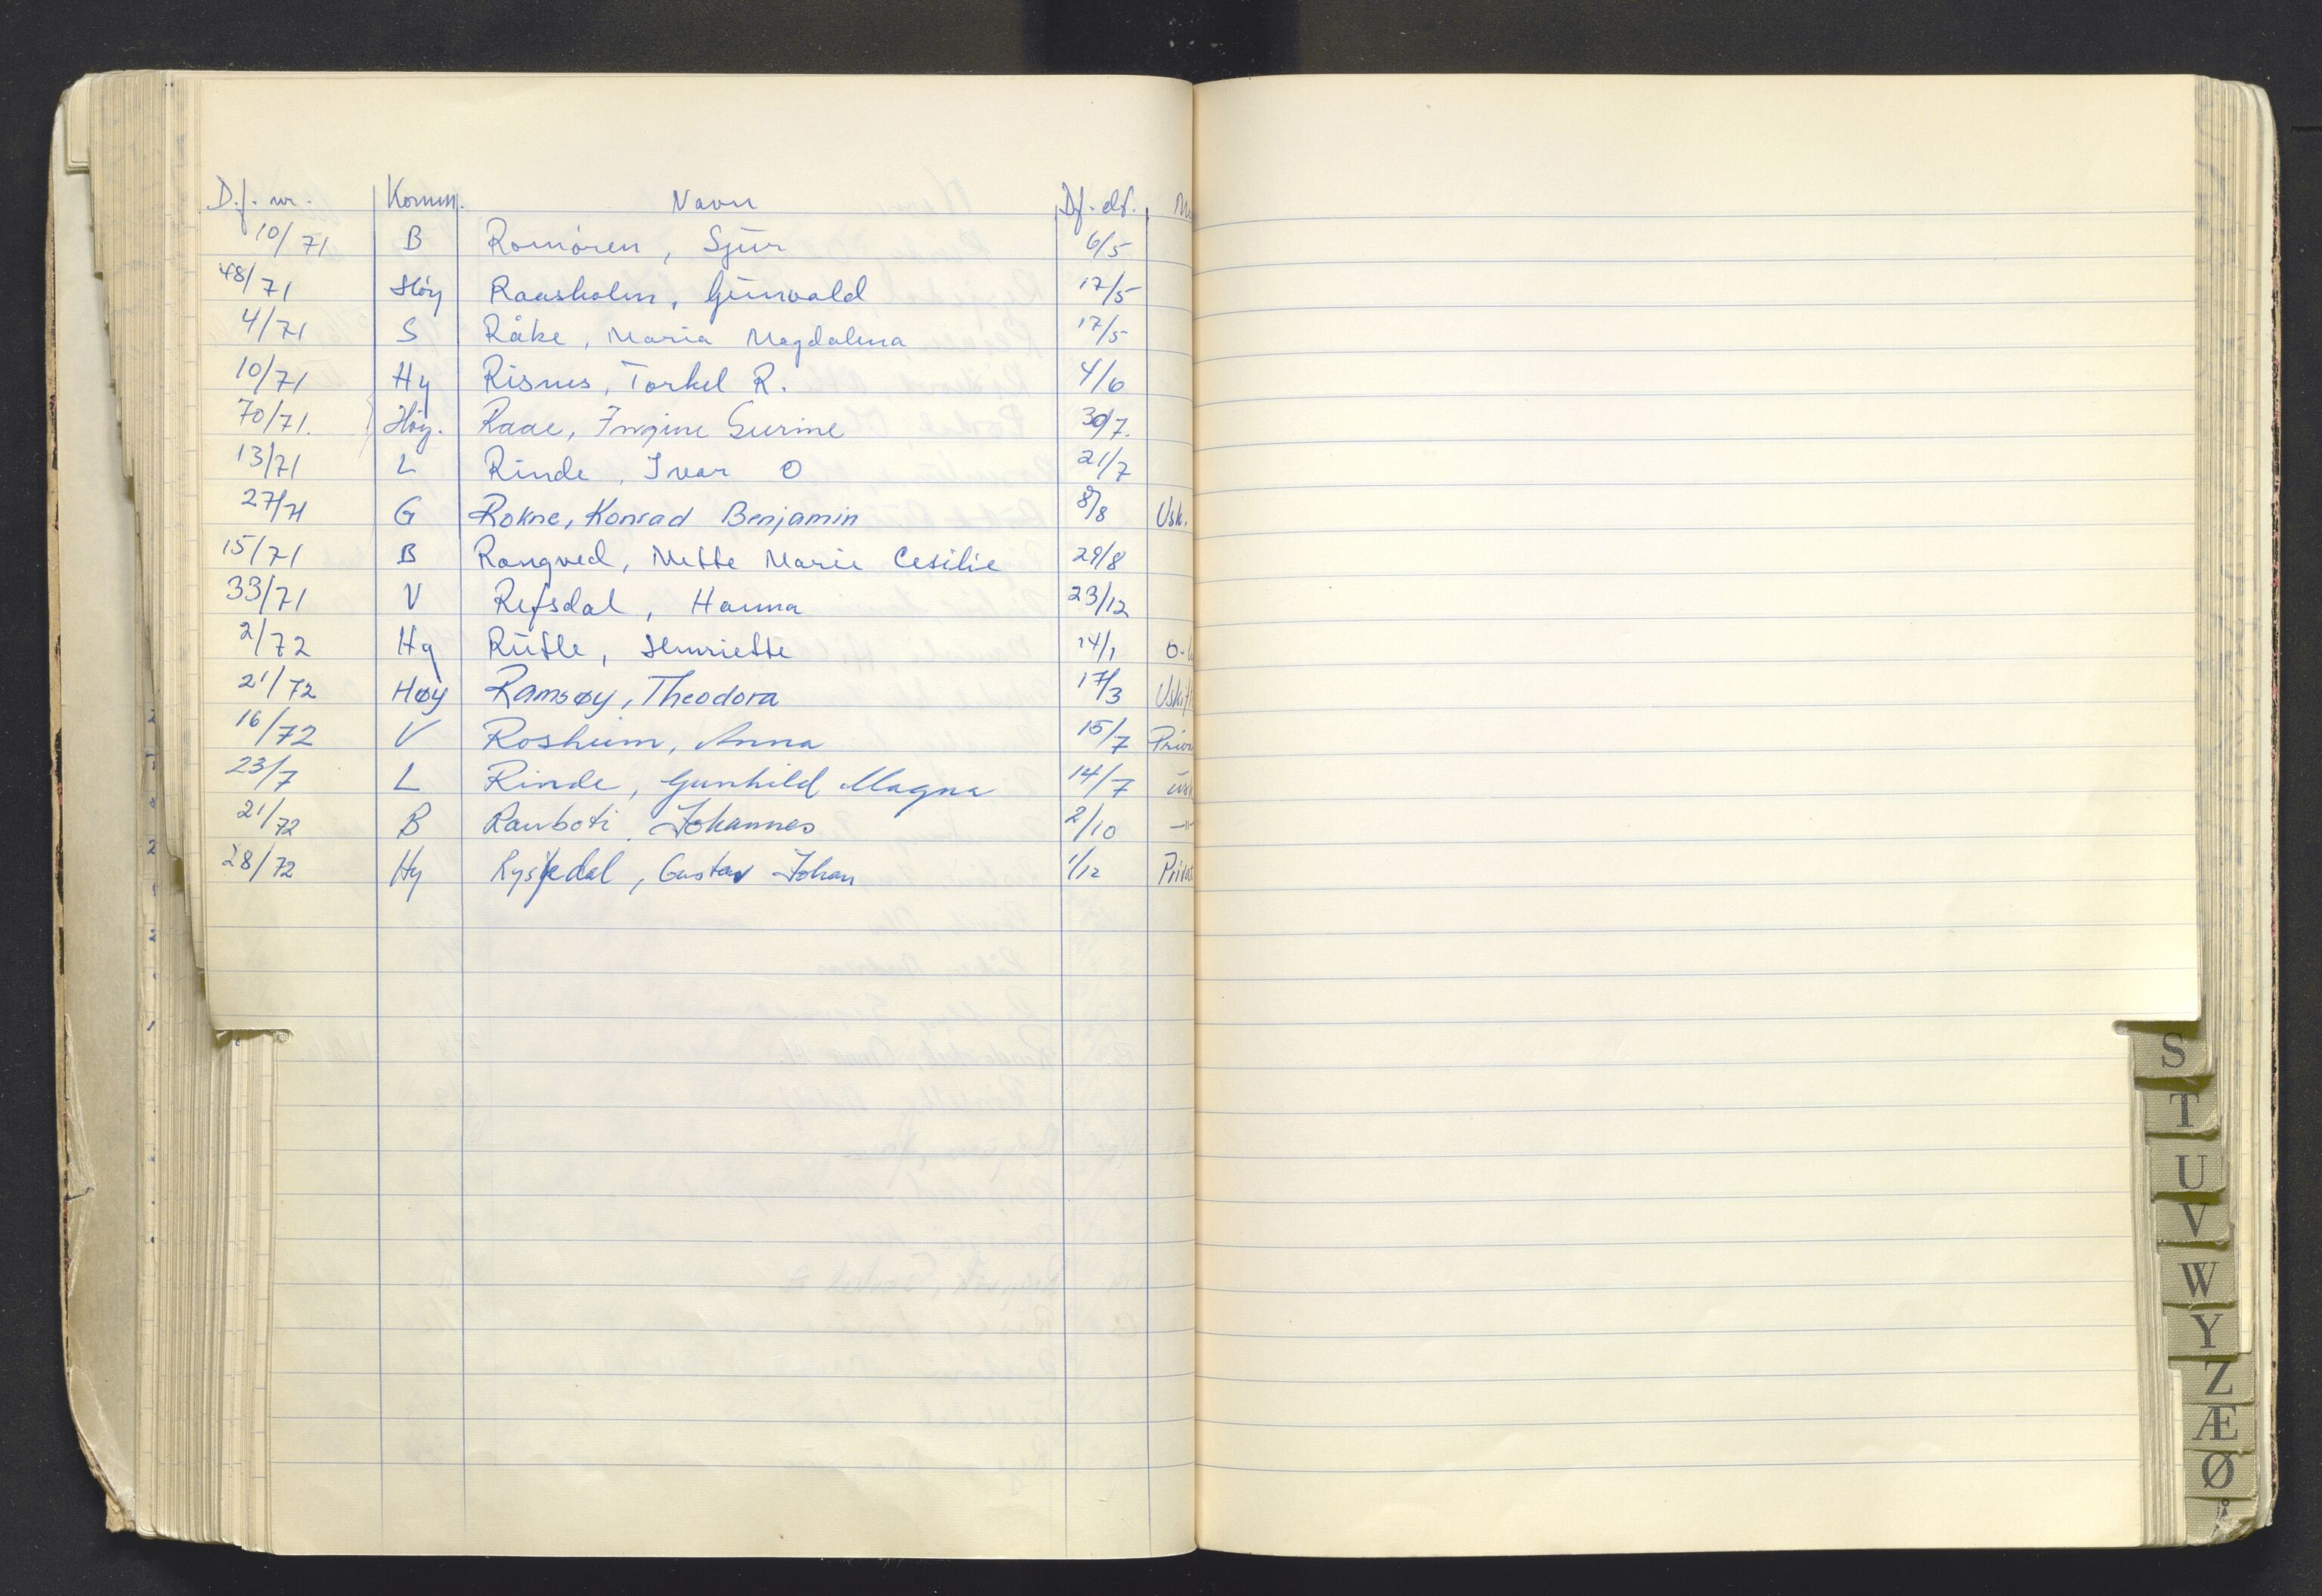 D.f. nr. Komm. Navn Df. dt.
10/71 B Romøren, Sjur 6/5
48/71 Høy Raasholm, Gunvald 17/5
4/71 S Råke, Maria Magdalena 17/5
10/71 Hy Risnes, Torkel R. 4/6
70/71. Høy. Raae, Ingine Surine 30/7.
13/71 L Rinde, Ivar O 21/7
27/71 G Rokne, Konrad Benjamin 8/8 Usk.
15/71 B Rongved, Mette Marie Cesilie 29/8
33/71 V Refsdal, Hanna 23/12
2/72 Hy Rutle, Henriette 14/1
21/72 Høy Ramsøy, Theodora 17/3
16/72 V Rosheim, Anna 15/7
23/7 L Rinde, Gunhild Magna 14/7
21/72 B Rauboti, Johannes 2/10 -"-
28/72 Hy Rysjedal, Gustav Johan 1/12
S
T
U
V
W
Y
Z
Æ
Ø
Å